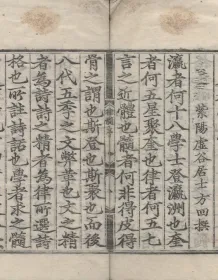 紫陽虛谷居士方回撰
瀛者何十八學士登瀛洲也奎
者何五星聚奎也律者何五七
言之近體也髓者何非得皮得
骨之謂也斯登也斯聚也而後
八代五季之文弊革也文之精
者為詩詩之精者為律所選詩
格也所註詩話也學者求之髓